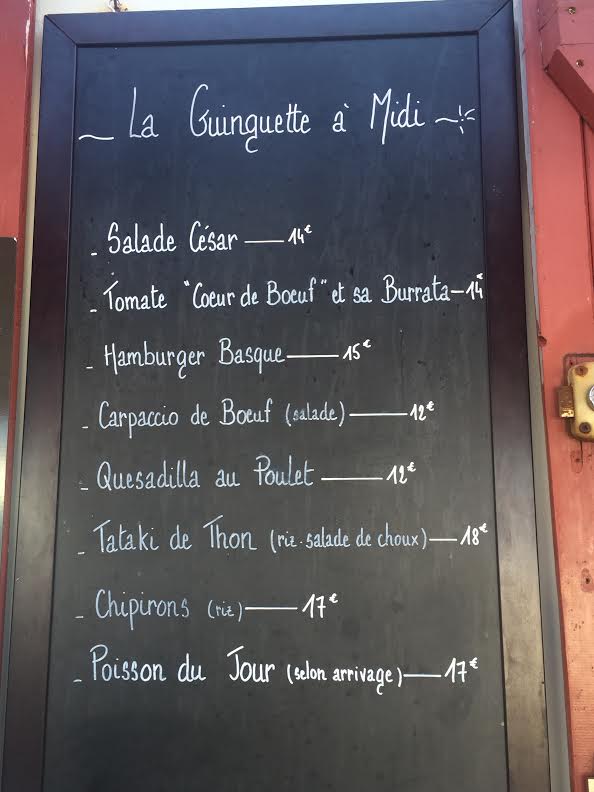 ~ La Guinguette à Midi ~
- Salade César — 14€
- Tomate "Coeur de Boeuf" et sa Burrata — 14€
- Hamburger Basque — 15€
- Carpaccio de Boeuf (salade) — 12€
- Quesadilla au Poulet — 12€
- Tataki de Thon (riz. salade de choux) — 18€
- Chipirons (riz) — 17€
- Poisson du Jour (selon arrivage) — 17€